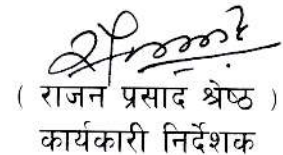 ( राजन प्रसाद श्रेष्ठ )
कार्यकारी निर्देशक